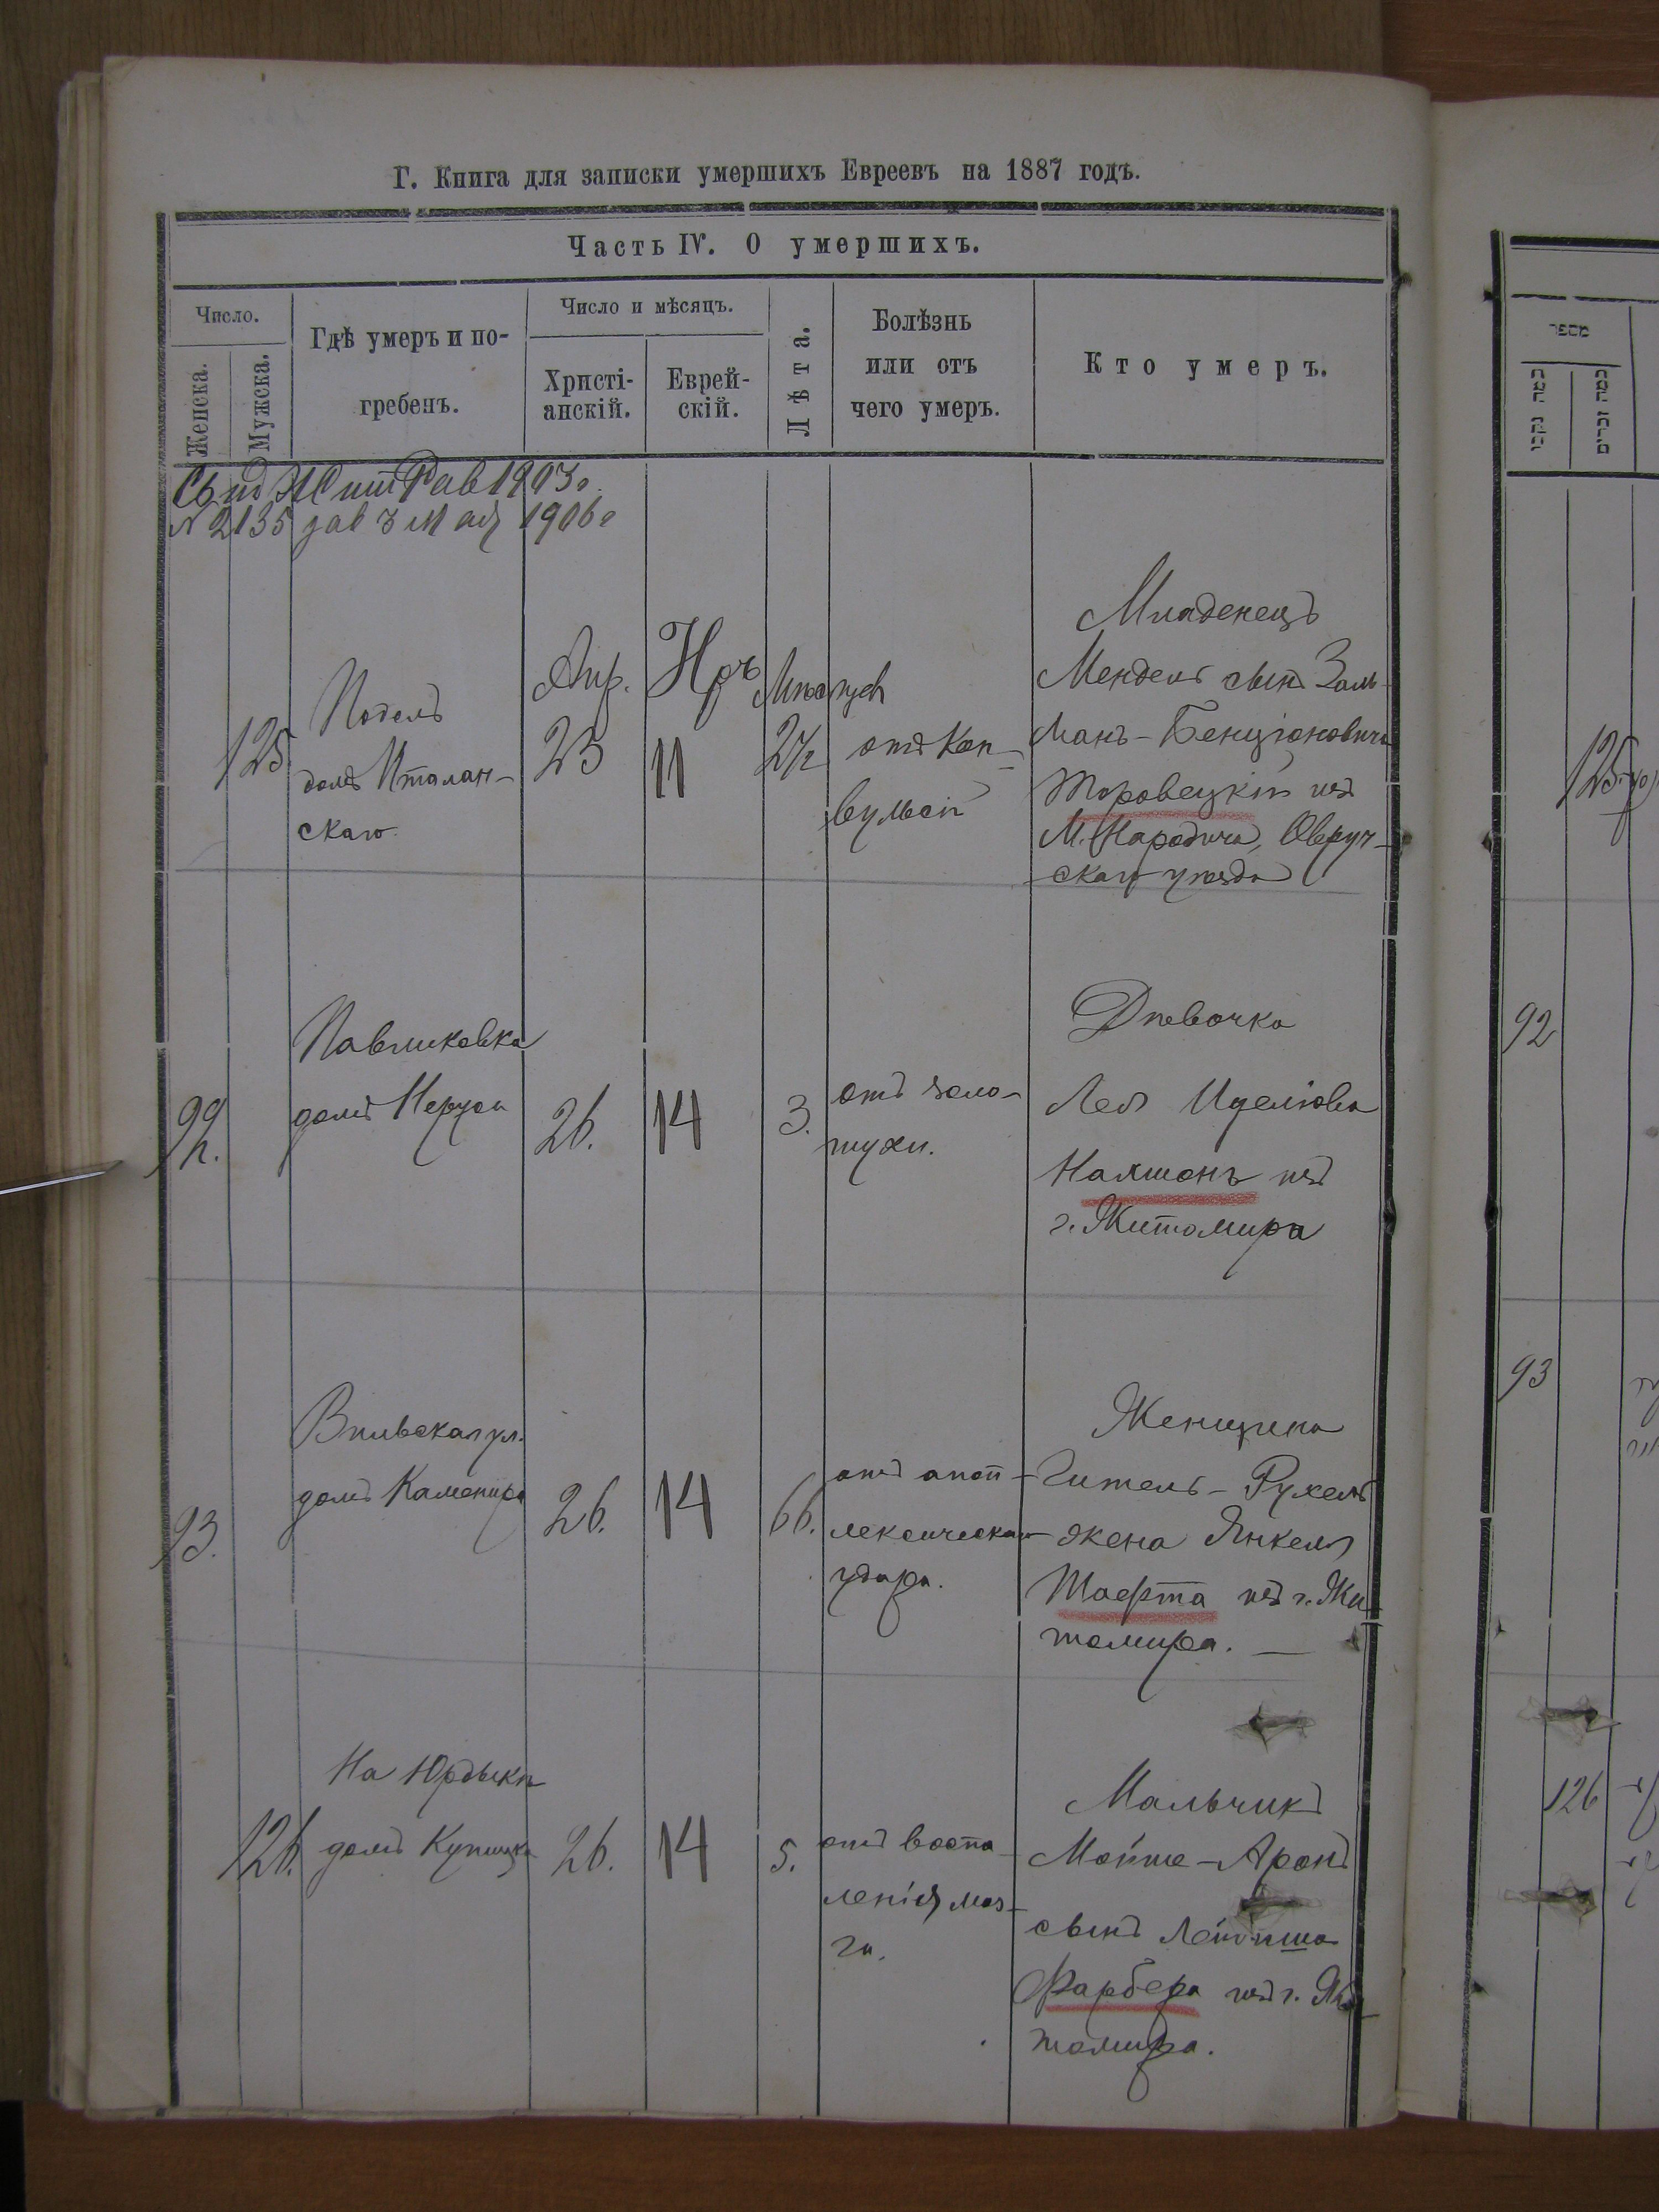 Г. Книга для записки умершихъ Евреевъ на 1887 годъ.
Часть IV. О умершихъ.
Число.
Женска.
Мужска.
Гдѣ умеръ и по-
гребенъ.
Число и мѣсяцъ.
Христі-
анскій.
Еврей-
скій.
Лѣта.
Болѣзнь
или отъ
чего умеръ.
Кто умеръ.
1903
N 2135 1906
125
Подолъ
домъ Италан-
скаго.
Апр.
23
Iръ
11
Мѣсяцев
2½
отъ Кон-
вульсій
Младенецъ
Мендель сынъ Заль-
манъ-Бенціоновича
Торовецкій изъ
М. Народичъ, Овруч-
скаго уѣзда
92.
Павликовка
домъ
26.
14
3.
отъ золо-
тухи.
Дѣвочка
Лея
Калшонъ изъ
г. Житомира
93.
Вильская ул.
домъ Каменира
26.
14
66.
отъ апоп-
лексическаго
удара.
Женщина
Гитель-Рухель
жена Янкеля
Шафта изъ г. Жи-
томира.
126.
На Юрдыкѣ
домъ
26.
14
5.
отъ воспа-
ленія моз-
га.
Мальчикъ
Мойше-Аронъ
сынъ
Фарбера изъ г. Жи-
томира.
מספר
125
92
93
126